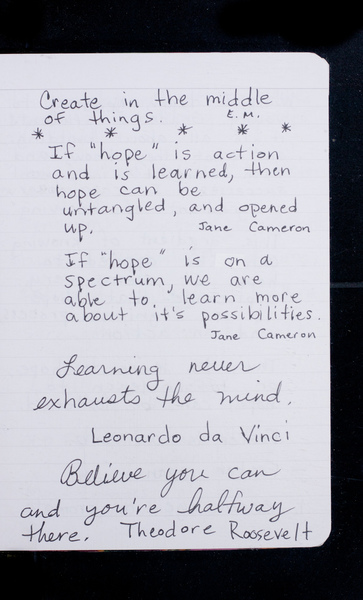 Create in the middle
of things. E.M.
* * * * *
If "hope" is action
and is learned, then
hope can be
untangled, and opened
up. Jane Cameron
If "hope" is on a
spectrum, we are
able to learn more
about it's possibilities.
Jane Cameron
Learning never
exhausts the mind.
Leonardo da Vinci
Believe you can
and you're halfway
there. Theodore Roosevelt